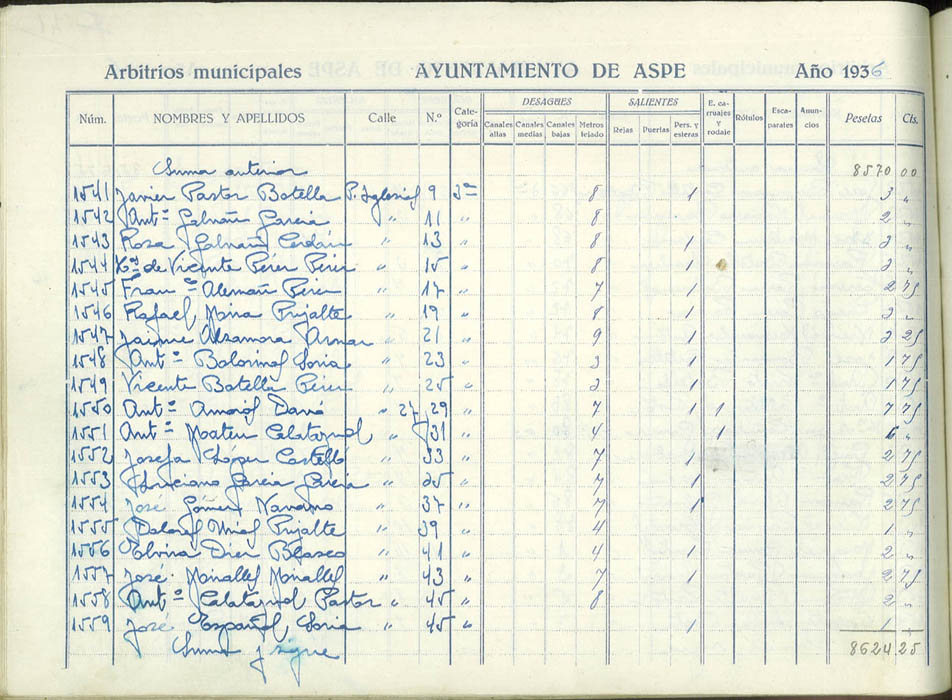 Arbitrios municipales AYUNTAMIENTO DE ASPE Año 1936
Núm. NOMBRES Y APELLIDOS Calle N.º Categoría DESAGÜES Canales altas Canales medias Canales bajas Metros tejado SALIENTES Rejas Puertas Pers. y esteras E. carruajes y rodaje Rótulos Escaparates Anuncios Pesetas Cts.
Suma anterior 8570 00
1541 Javier Pastor Botella P. Iglesias 9 3ª 8 1 3 "
1542 Antº Galvañ Garcia " 11 " 8 2 "
1543 Rosa Galvañ Cerdán " 13 " 8 1 "
1544 de Vicente Pérez Pérez " 15 " 8 1 "
1545 Franº Alemañ Pérez " 17 " 7 1 2 75
1546 Rafael Mira Pujalte " 19 " 8 1 "
1547 Jaime Alzamora " 21 " 9 1 25
1548 Antº Soria " 23 " 3 1 1 75
1549 Vicente Botella Pérez " 25 " 2 1 1 75
1550 Antº Amorós Davó " 27, 29 " 7 1 1 7 75
1551 Antº Mateu Calatayud " 31 " 4 1 6 "
1552 Josefa López Castelló " 33 " 7 1 2 75
1553 Luciano Garcia Garcia " 35 " 7 1 2 75
1554 José Gómez Navarro " 37 " 7 1 2 75
1555 Dolores Pujalte " 39 4 1 "
1556 Elvira Diez Blasco " 41 " 4 1 2 "
1557 José Miralles Miralles " 43 " 7 1 2 75
1558 Antº Calatayud Pastor " 45 " 8 2 "
1559 José Español Soria " 45 " 1 1 "
Suma y sigue 8624 25